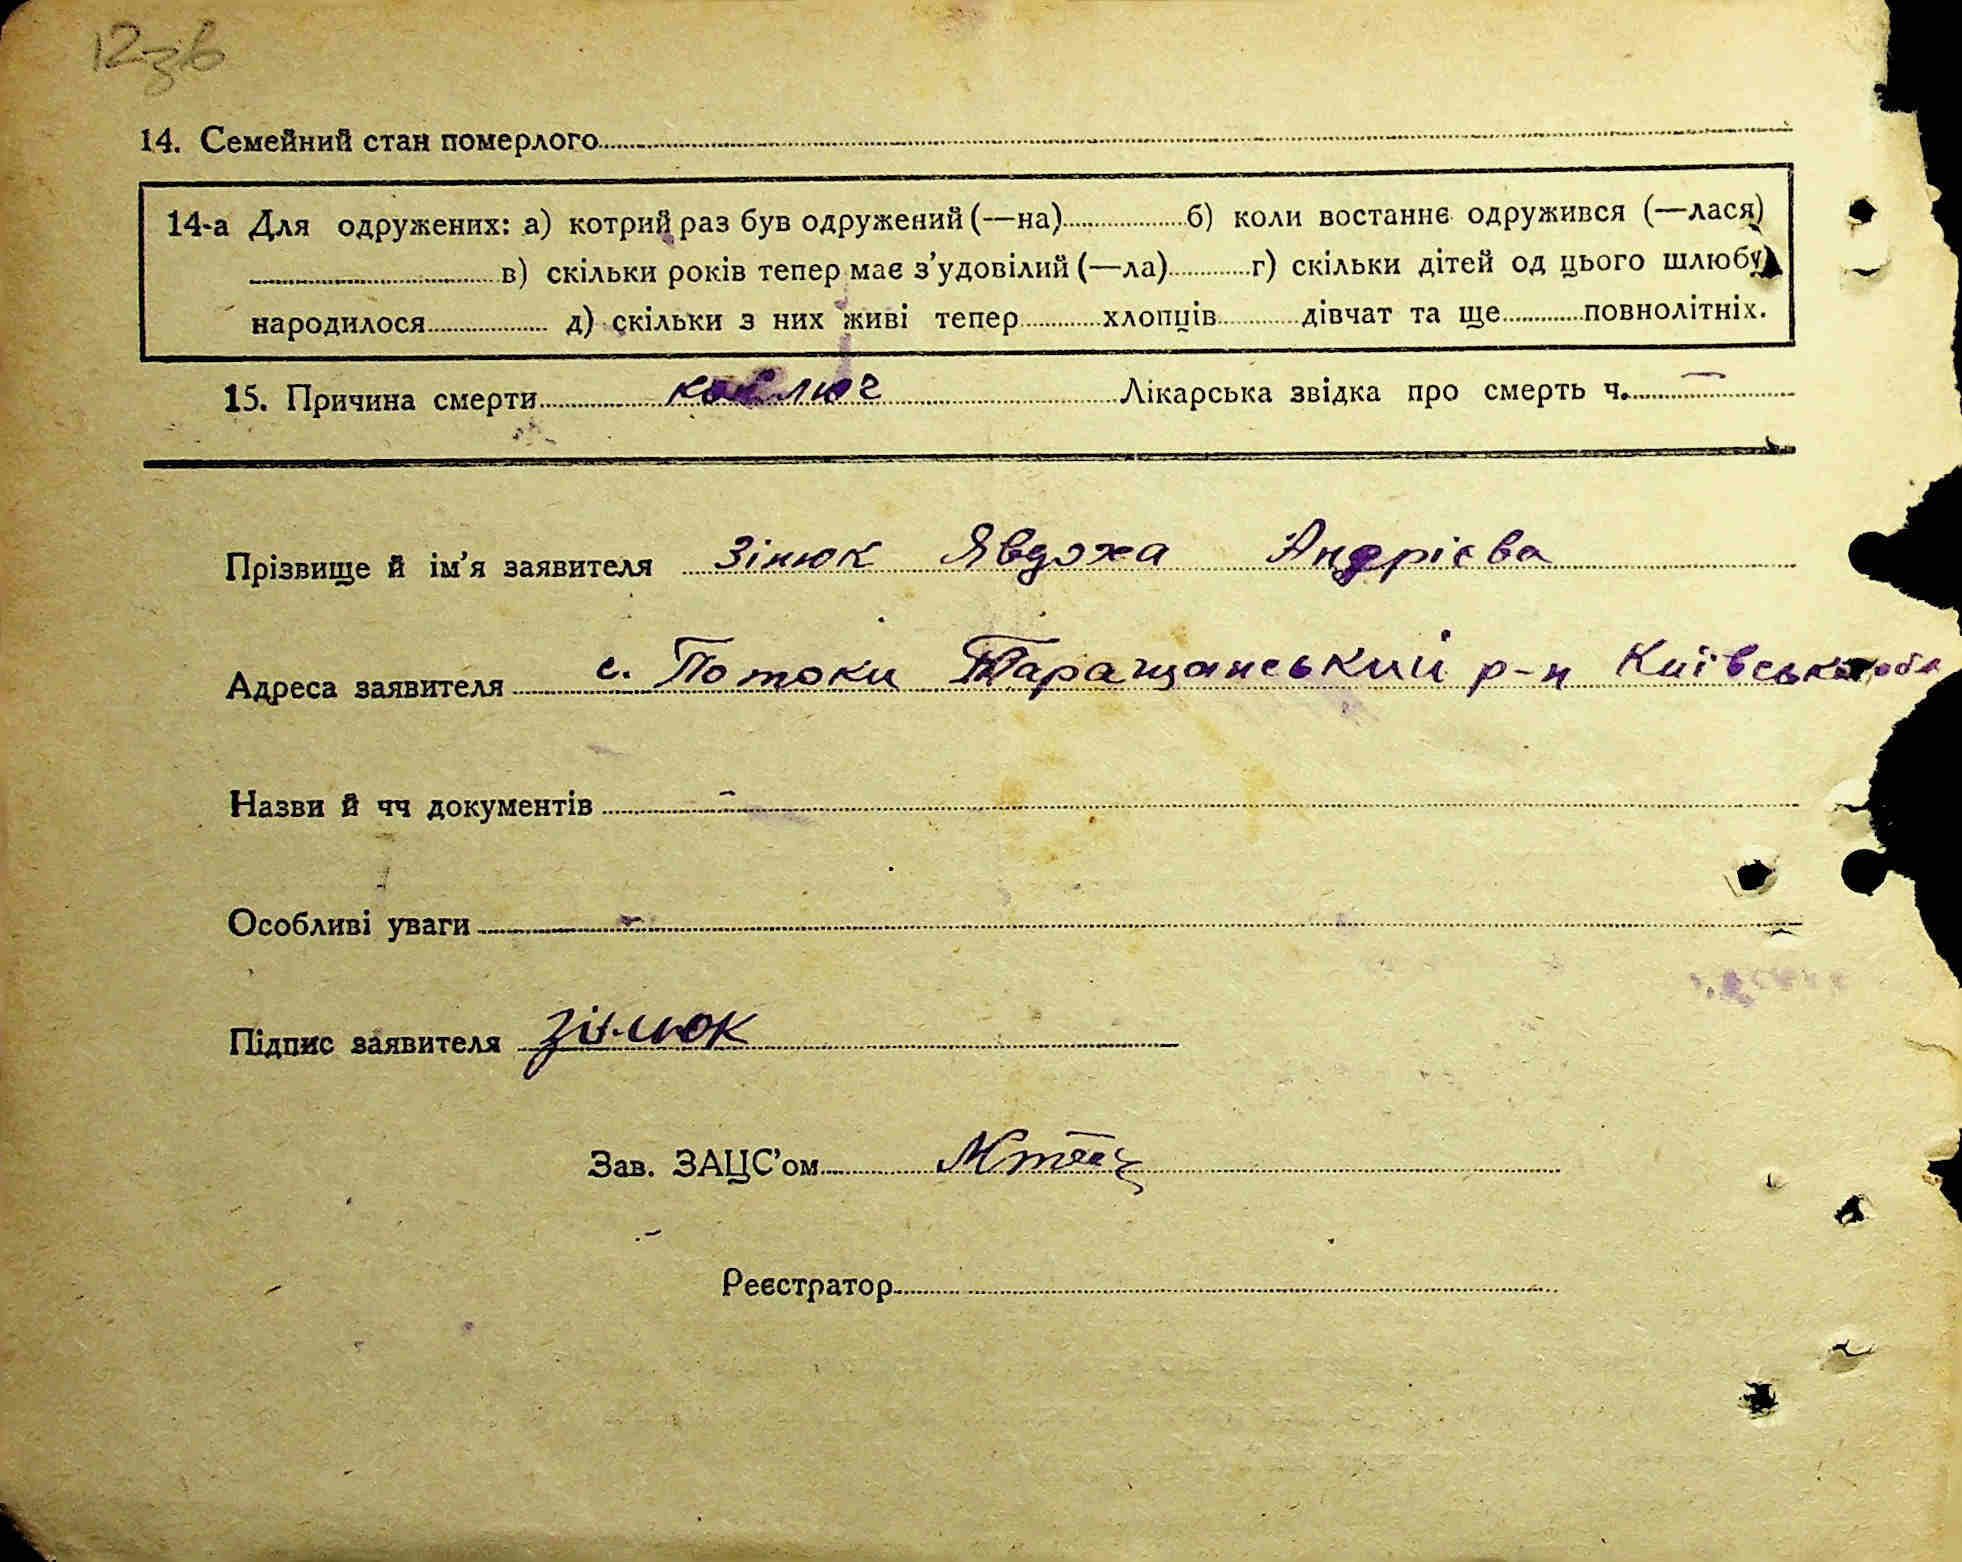 12зв
14. Семейний стан померлого
14-а Для одружених: а) котрий раз був одружений (—на) б) коли востаннє одружився (—лася)
в) скільки років тепер має з’удовілий (—ла) г) скільки дітей од цього шлюбу
народилося д) скільки з них живі тепер хлопців дівчат та ще повнолітніх.
15. Причина смерти коклюг Лікарська звідка про смерть ч. —
Прізвище й ім’я заявителя Зінюк Явдоха Андрієва
Адреса заявителя с. Потоки Таращанський р-н Київська обл
Назви й чч документів -
Особливі уваги -
Підпис заявителя Зінюк
Зав. ЗАЦС’ом
Реєстратор